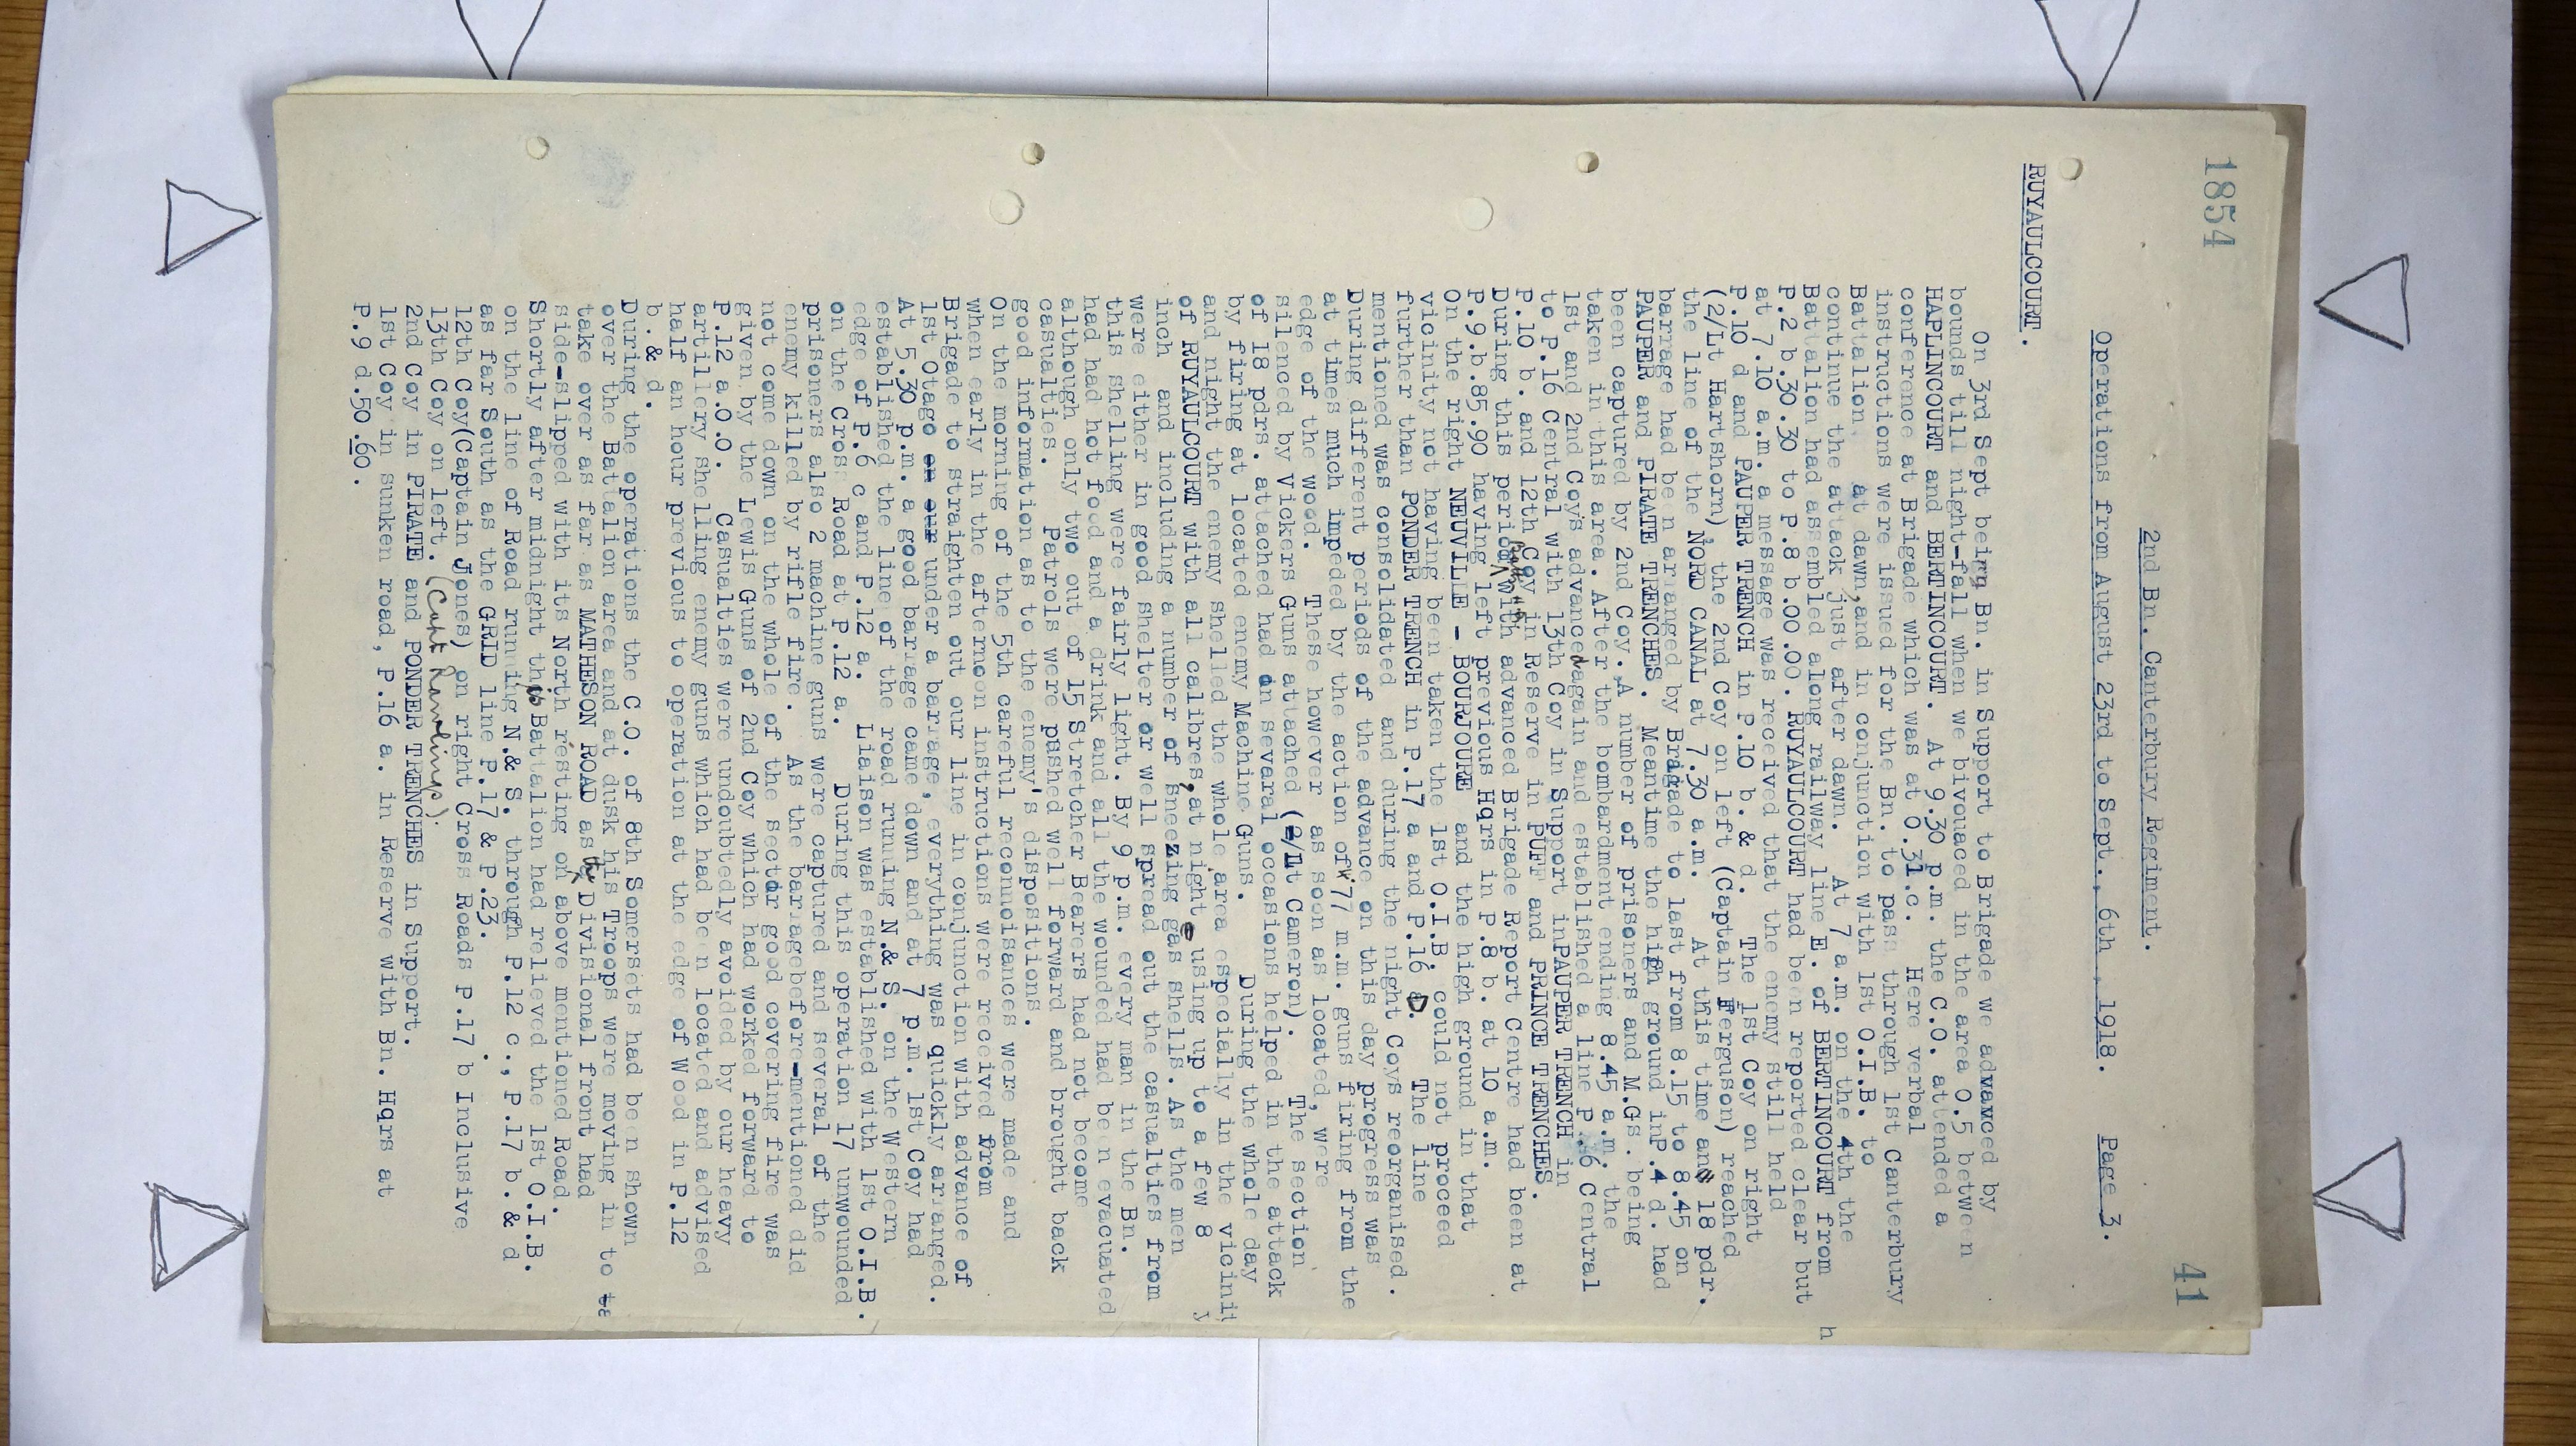 1854
41
2nd Bn. Canterbury Regiment.
Operations from August 23rd to Sept., 6th, 1918. Page 3.
RUYAULCOURT.
On 3rd Sept being Bn. in Support to Brigade we advanced by
bounds till night-fall when we bivouaced in the area O.5 betwe n
HAPLINCOURT and BERTINCOURT. At 9.30 p.m. the C.O. attended a
conference at Brigade which was at O.31.c. Here verbal
instructions were issued for the Bn. to pass through 1st Canterbury
Battalion at dawn, and in conjunction with 1st O.I.B. to
continue the attack just after dawn. At 7 a.m. on the 4th the
Battalion had assembled along railway line E. of BERTINCOURT from
P.2 b.30.30 to P.8 b.00.00. RUYAULCOURT had been reported clear but
at 7.10 a.m. a message was received that the enemy still held
P.10 d and PAUPER TRENCH in P.10 b. & d. The 1st Coy on right
(2/Lt Hartshorn), the 2nd Coy on left (Captain Ferguson) reached
the line of the NORD CANAL at 7.30 a.m. At this time an 18 pdr.
barrage had be n arranged by Brigade to last from 8.15 to 8.45 on
PAUPER and PIRATE TRENCHES. Meantime the high ground inP.4 d. had
been captured by 2nd Coy. A number of prisoners and M.Gs. being
taken in this area. After the bombardment ending 8.45 a.m. the
1st and 2nd Coys advanced again and established a line P.6 Central
to P.16 Central with 13th Coy in Support inPAUPER TRENCH in
P.10 b. and 12th Coy in Reserve in PUFF and PRINCE TRENCHES.
During this period with advanced Brigade Report Centre had been at
P.9.b.85.90 having left previous Hqrs in P.8 b. at 10 a.m.
On the right NEUVILLE - BOURJOURE and the high ground in that
vicinity not having been taken the 1st O.I.B. could not proceed
further than PONDER TRENCH in P.17 a and P.16 D. The line
mentioned was consolidated and during the night Coys reorganised.
During different periods of the advance on this day progress was
at times much impeded by the action of 77 m.m. guns firing from the
edge of the wood. These however as soon as located, were
silenced by Vickers Guns attached (2/Lt Cameron). The section
of 18 pdrs. attached had on sevaral occasions helped in the attack
by firing at located enemy Machine Guns. During the whole day
and night the enemy shelled the whole area especially in the vicinity
of RUYAULCOURT with all calibres, at night using up to a few 8
inch and including a number of sneezing gas shells. As the men
were either in good shelter or well spread out the casualties from
this shelling were fairly light. By 9 p.m. every man in the Bn.
had had hot food and a drink and all the wounded had be n evacuated
although only two out of 15 Stretcher Bearers had not become
casualties. Patrols were pushed well forward and brought back
good information as to the enemy's dispositions.
On the morning of the 5th careful reconnoisances were made and
when early in the afternoon instructions were received from
Brigade to straighten out our line in conjunction with advance of
1st Otago on our under a barrage, everything was quickly arranged.
At 5.30 p.m. a good barrage came down and at 7 p.m. 1st Coy had
established the line of the road running N.& S. on the Western
edge of P.6 c and P.12 a. Liaison was established with 1st O.I.B.
on the Cross Road at P.12 a. During this operation 17 unwounded
prisoners also 2 machine guns were captured and several of the
enemy killed by rifle fire. As the barragebefore-mentioned did
not come down on the whole of the sector good covering fire was
given by the Lewis Guns of 2nd Coy which had worked forward to
P.12 a.0.0. Casualties were undoubtedly avoided by our heavy
artillery shelling enemy guns which had be n located and advised
half an hour previous to operation at the edge of Wood in P.12
b. & d.
During the operations the C.O. of 8th Somersets had be n shown
over the Battalion area and at dusk his Troops were moving in to ta
take over as far as MATHESON ROAD as the Divisional front had
side-slipped with its North resting on above mentioned Road.
Shortly after midnight this Battalion had relieved the 1st O.I.B.
on the line of Road running N.& S. through P.12 c., P.17 b. & d
as far South as the GRID line P.17 & P.23.
12th Coy(Captain Jones) on right Cross Roads P.17 b Inclusive
13th Coy on left. (Capt Rawlings).
2nd Coy in PIRATE and PONDER TRENCHES in Support.
1st Coy in sunken road, P.16 a. in Reserve with Bn. Hqrs at
P.9 d.50.60.